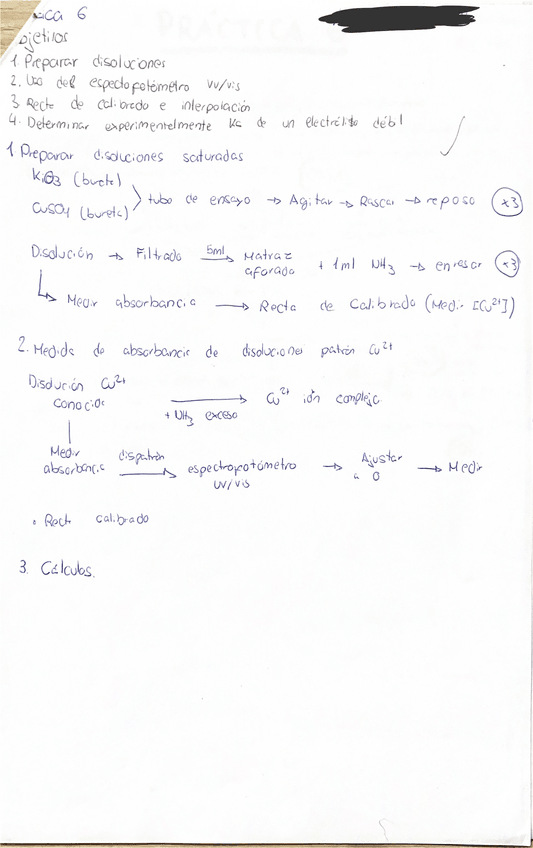 ica 6
ojetivos
1 Preparar disoluciones
2. Uso del espectofotómetro UV/vis
3 Recta de calibrado e interpolación
4. Determinar experimentalmente de un electrólito débil
1 Preparar disoluciones saturadas
KIO3 (bureta)
CuSO4 (bureta)
tubo de ensayo → Agitar → Rascar → reposo x3
Disolución → Filtrado 5ml → Matraz aforado + 1ml NH3 → enrasar x3
Medir absorbancia → Recta de Calibrado (Medir [Cu2+])
2. Medida de absorbancia de disoluciones patrón Cu2+
Disolución Cu2+
conocida + NH3 exceso → Cu2+ ión complejo
Medir
absorbancia dispatrón → espectrofotómetro UV/vis → Ajustar a 0 → Medir
• Recta calibrado
3. Cálculos.